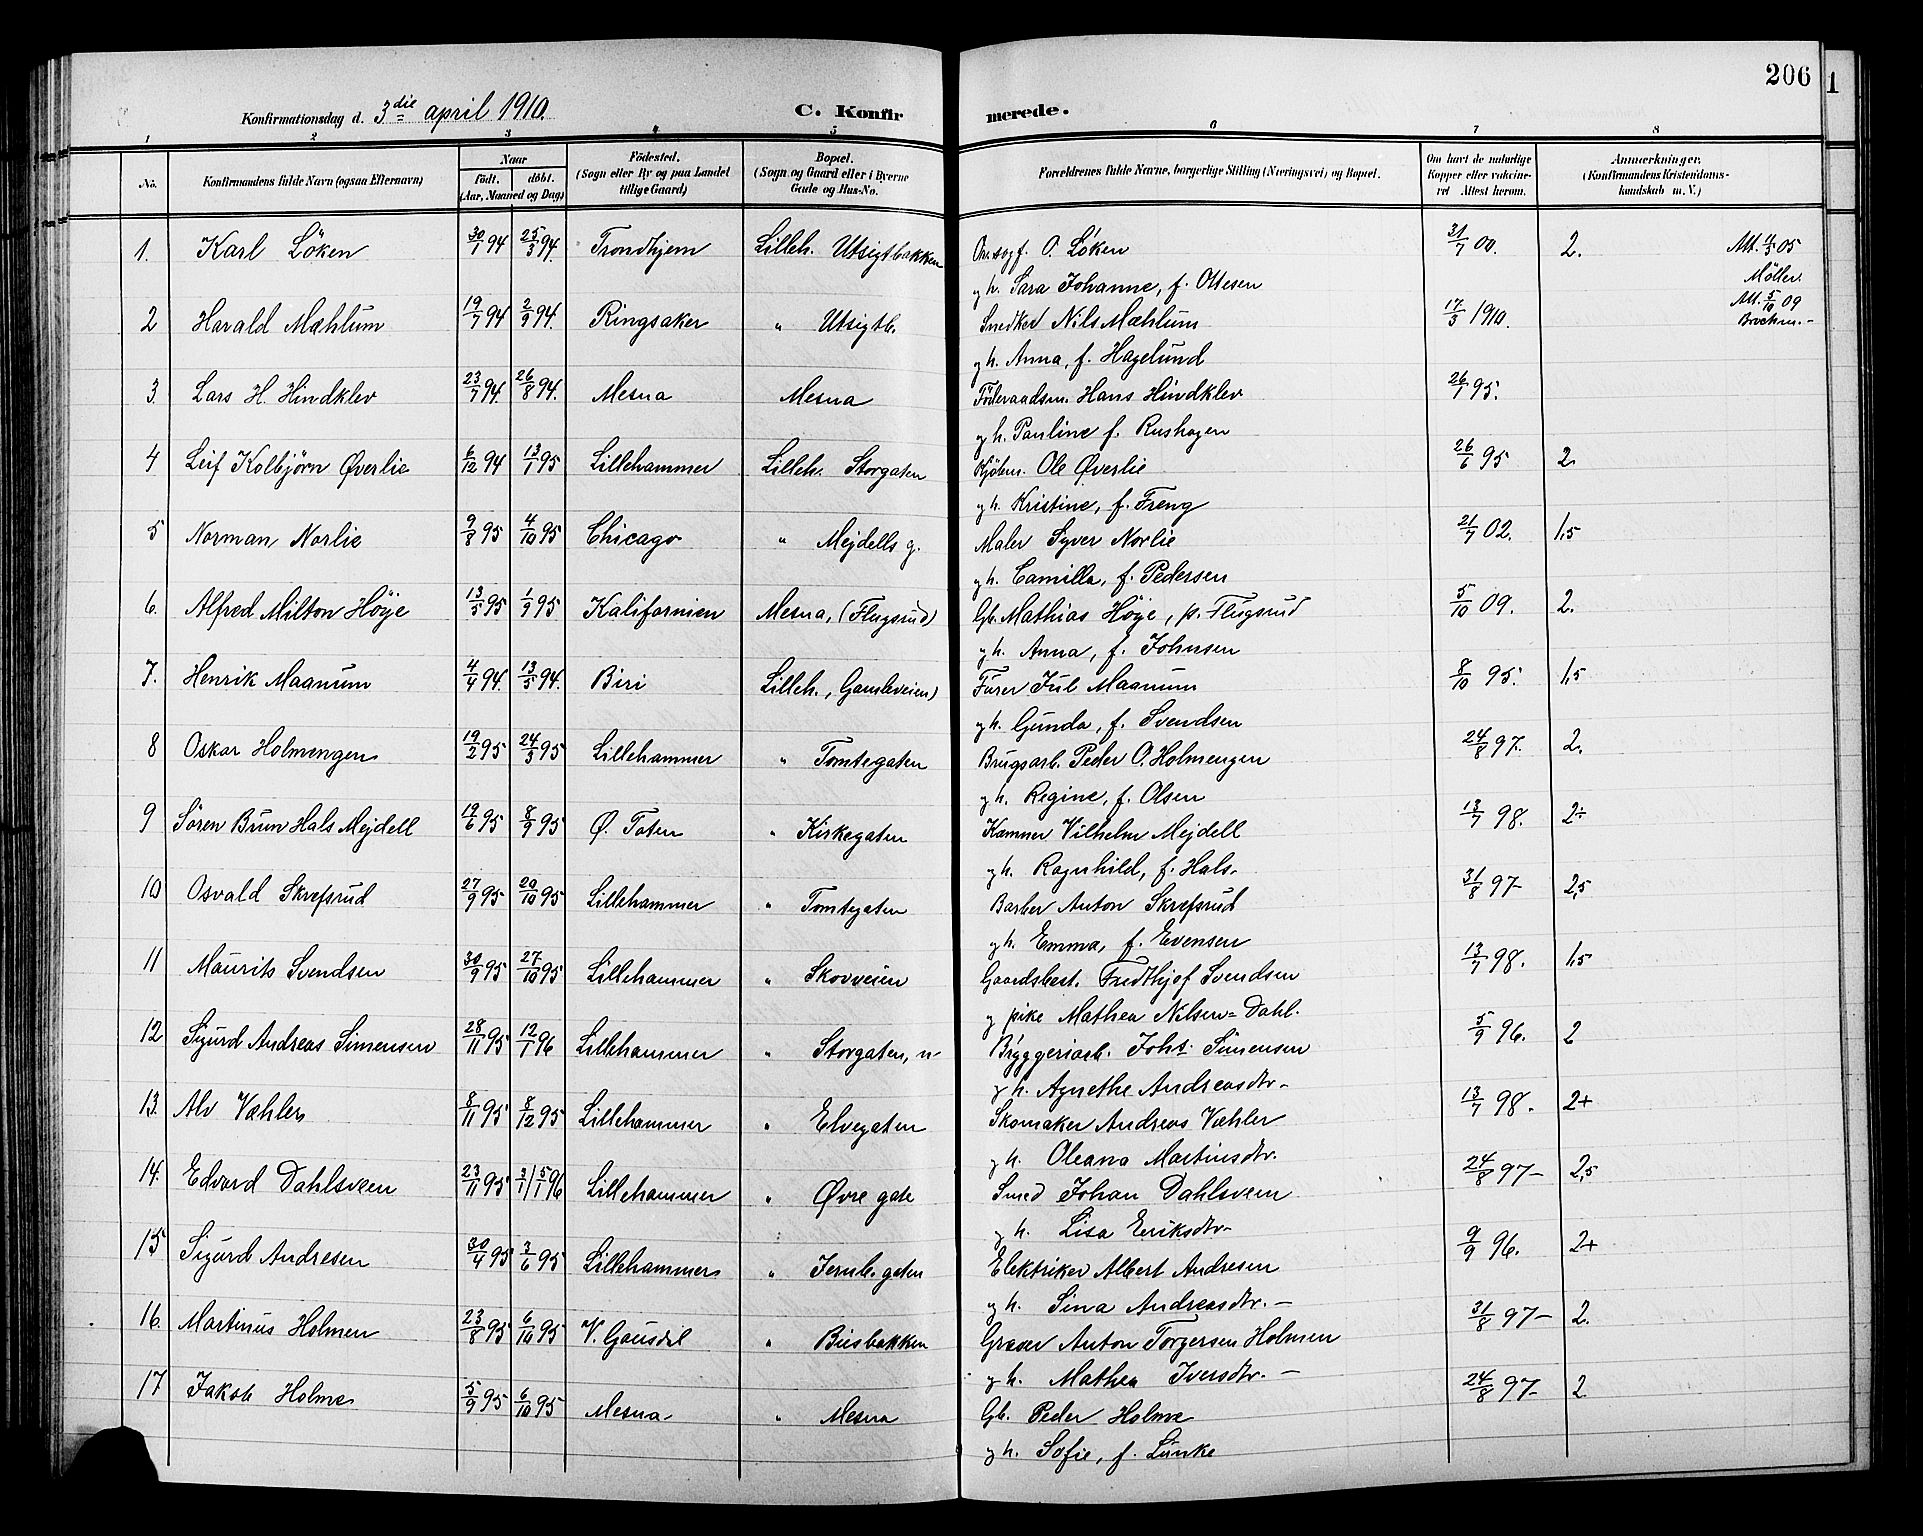 206
1
Konfirmationsdag d. 3die april 1910.
C. Konfirmerede.
1 2 3 4 5 6 7 8
No.
Konfirmandens fulde Navn (ogsaa Efternavn)
Naar
födt. döbt.
(Aar, Maaned og Dag)
Födested.
(Sogn eller By og paa Landet
tillige Gaard)
Bopæl.
(Sogn og Gaard eller i Byerne
Gade og Hus-No.
Forældrenes fulde Navne, borgerlige Stilling (Næringsvei) og Bopæl.
Om havt de naturlige
Kopper eller vaksine-
ret Attest herom.
Anmerkninger.
(Konfirmandens Kristendoms-
kundskab m. V.)
1. Karl Löken 30/1 94 25/3 94. Trondhjem Lilleh. Utsigtbakken O. Løken 31/7 00. 2. Att. 05
g h. Sara Johanne, f. Ottesen Möller
2 Harald Mæhlum 19/7 94 2/9 94. Ringsaker " Utsigtb. Snedker Nils Mæhlum 17/3 1910. Att. 5/10 09
g h. Anna, f. Hagelund
3. Lars H. Hindklev 23/7 94. 26/8 94. Mesna Mesna Föderaadsm. Hans Hindklev 26/1 95.
g h. Pauline f. Rushagen
4 Leif Kolbjörn Øverlie 6/12 94 13/1 95 Lillehammer Lilleh. Storgaten Kjöbm. Ole Øverlie 26/6 95 2.
g h. Kristine, f. Freng
5 Norman Norlie 9/8 95 4/10 95 Chicago " Mejdells g. Maler Syver Norlie 21/7 02. 1,5
g h. Camilla, f. Pedersen
6. Alfred Milton Höye 13/5 95 1/9 95 Kalifornien Mesna, (Flugsrud) Gb. Mathias Höye, p. Flugsrud 5/10 09. 2.
g h. Anna, f. Johnsen
7. Henrik Maanum 4/4 94. 13/5 94. Biri Lilleh., Gamleveien) Furer Jul Maanum 8/10 95. 1,5
g h. Gunda, f. Svendsen
8 Oskar Holmengen 19/2 95 24/3 95 Lillehammer " Tomtegaten Brugsarb. Peder O. Holmengen 24/8 97. 2.
g h. Regine, f. Olsen
9 Sören Brun Hals Mejdell 19/6 95 8/9 95 Ø. Toten " Kirkegaten Kæmner Vilhelm Mejdell 13/7 98. 2÷
g h. Ragnhild, f. Hals.
10 Osvald Skrefsrud 27/9 95 20/10 95 Lillehammer " Tomtegaten Barber Anton Skrefsrud 31/8 97- 2,5
g h. Emma, f. Evensen
11 Maurits Svendsen 30/9 95 27/10 95 Lillehammer " Skovveien Gaardsbest. Fredthjof Svendsen 13/7 98. 1,5
g pike Mathea Nilsen-Dahl.
12 Sigurd Andreas Simensen 28/11 95 12/1 96 Lillehammer " Storgaten, n- Bryggeriarb. Johs. Simensen 5/9 96. 2
g h. Agnethe Andreasdtr-
13. Alv Væhler 8/11 95 8/12 95 Lillehammer " Elvegaten Skomaker Andreas Væhler 13/7 98. 2+
g h. Oleana Martinsdtr.
14. Edvard Dahlsveen 23/11 95 5/1 96 Lillehammer " Øvre gate Smed Johan Dahlsveen 24/8 97- 2,5
g h. Lisa Eriksdtr-
15 Sigurd Andresen 30/4 95 3/6 95 Lillehammer " Jernb. gaten Elektriker Albert Andresen 9/9 96. 2+
g h. Sina Andreasdtr. -
16. Martinus Holmen 23/8 95 6/10 95 V. Gausdal " Busbakken Graver Anton Torgersen Holmen 31/8 97- 2.
g h. Mathea Iversdtr. -
17 Jakob Holme 5/9 95 6/10 95 Mesna " Mesna Gb. Peder Holme 24/8 97- 2
g h. Sofie, f. Lunke